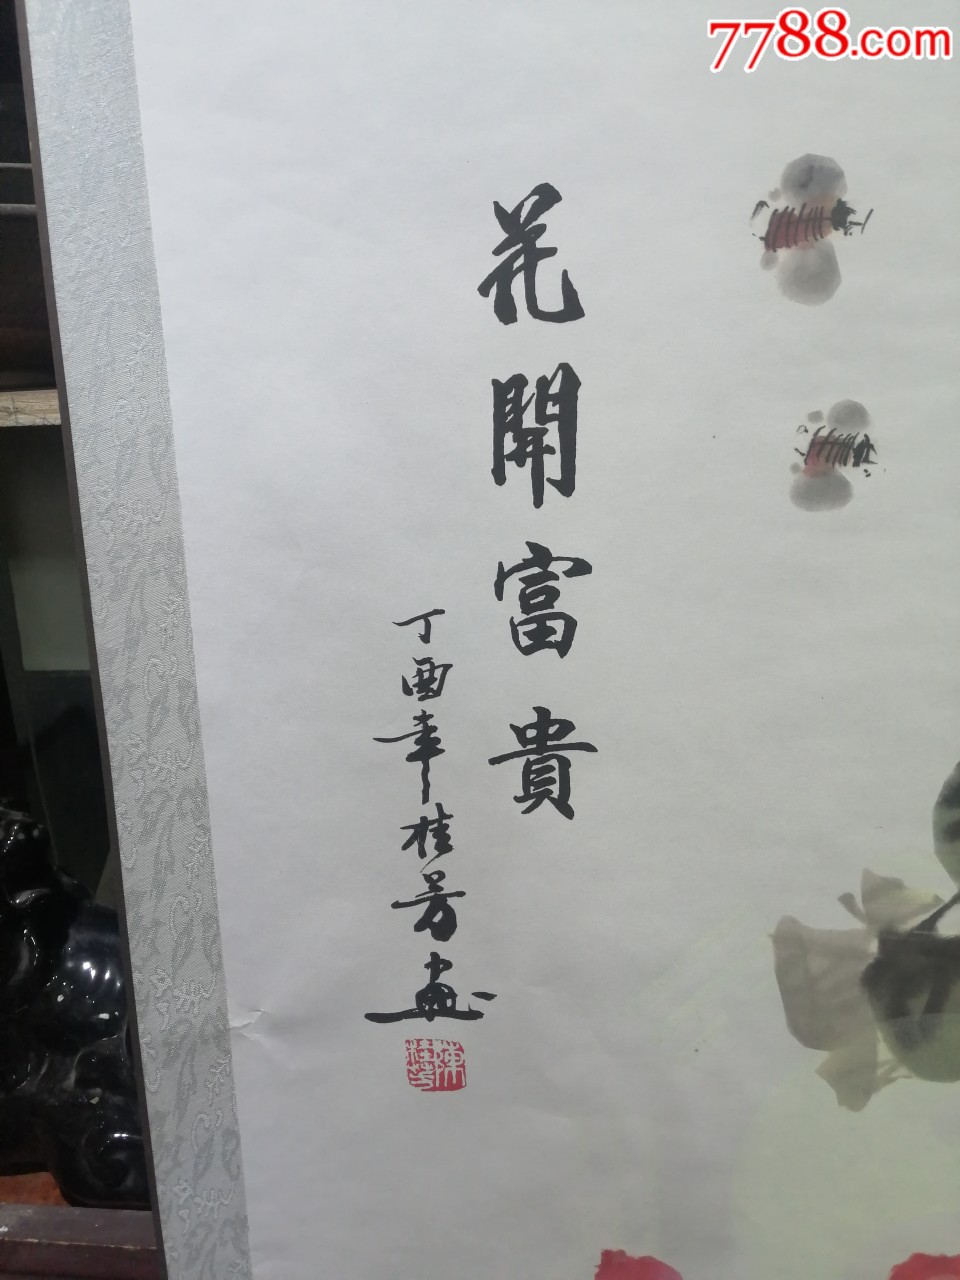 7788.com
花開富貴
丁酉年桂芳画
陳桂芳